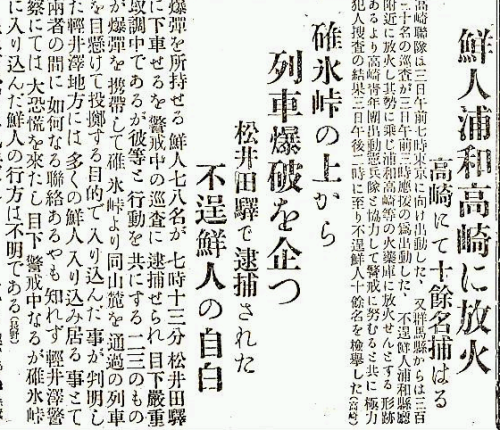 鮮人浦和高崎に放火
高崎にて十餘名捕はる
高崎聯隊は三日午前七時東京に向け出動した、又群馬縣からは三百
三十名の巡査が三日午前三時應援の爲出動した、不逞鮮人浦和縣廳
附近に放火し其勢に乘じ浦和高崎等の火藥庫に放火せんとする形跡
あるより高崎青年團出動憲兵隊と協力して警戒に努むると共に極力
犯人搜査の結果三日午後二時に至り不逞鮮人十餘名を檢擧した(高崎)
碓氷峠の上から
列車爆破を企つ
松井田驛で逮捕された
不逞鮮人の自白
爆彈を所持せる鮮人七八名が七時十三分松井田驛
に下車せるを警戒中の巡査に逮捕せられ目下嚴重
取調中であるが彼等と行動を共にする二三のもの
が爆彈を携帶して碓氷峠より同山麓を通過の列車
を目懸けて投擲する目的で入り込んだ事が判明し
た輕井澤地方には多くの鮮人入り込み居る事とて
兩者の間に如何なる聯絡あるやも知れず輕井澤警
察にては大恐慌を來たし目下警戒中なるが碓氷峠
に入り込んだ鮮人の行方は不明である(長野)